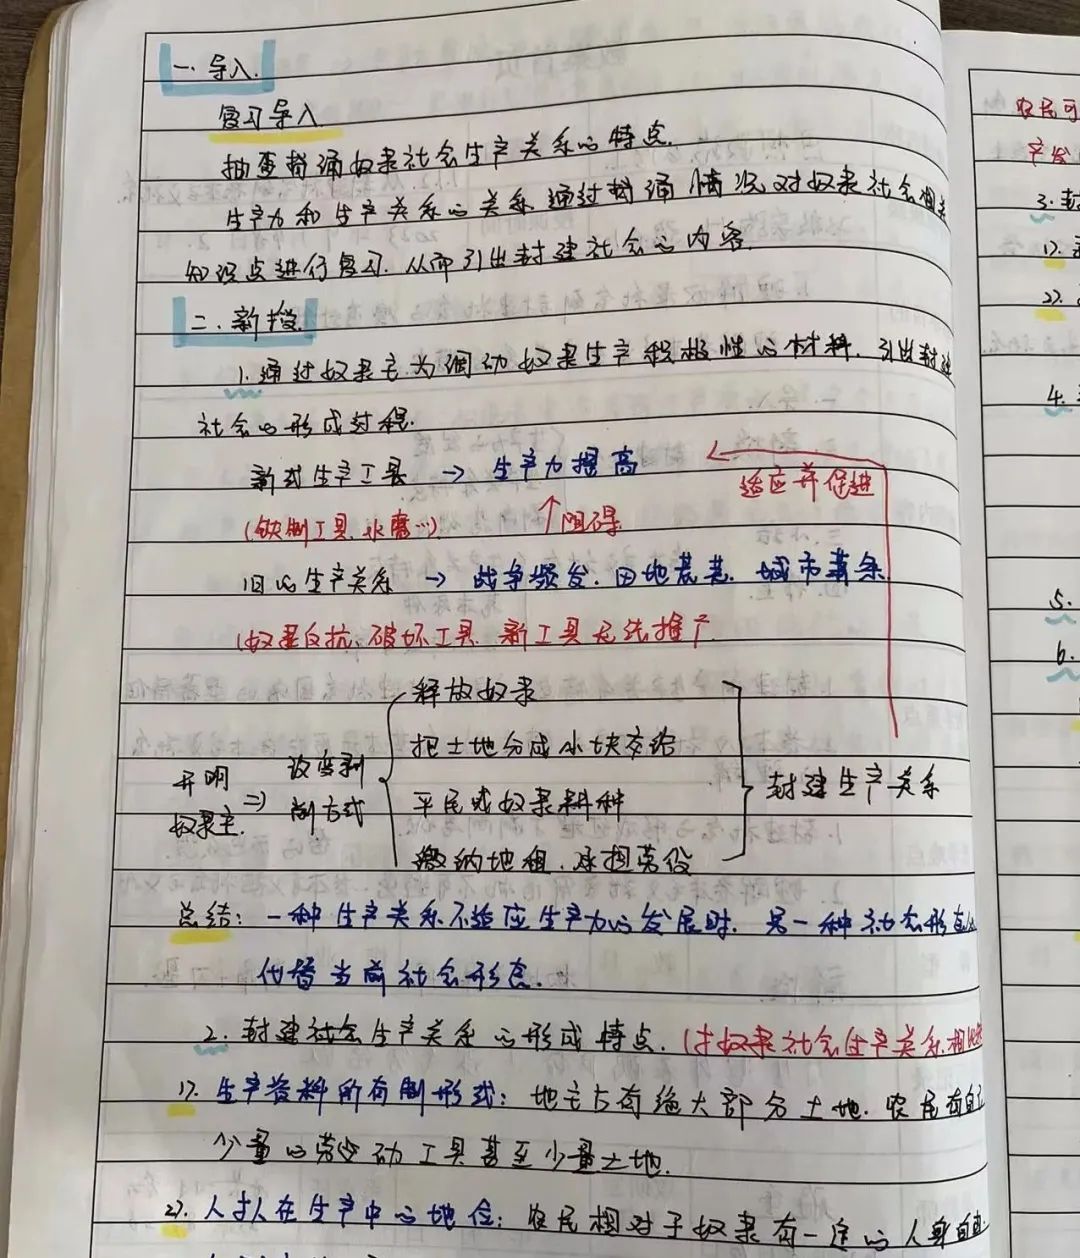 一. 导入.
复习导入
抽查背诵奴隶社会生产关系的特点.
生产力和生产关系的关系. 通过背诵情况对奴隶社会相关
知识点进行复习. 从而引出封建社会的内容.
二. 新授.
1. 通过奴隶主为调动奴隶生产积极性的材料. 引出封建
社会的形成过程.
新式生产工具 → 生产力提高
适应并促进
(铁制工具. 水磨…) ↑阻碍
旧的生产关系 → 战争频发. 田地荒芜. 城市萧条
(奴隶反抗. 破坏工具. 新工具无法推广
释放奴隶
把土地分成小块交给
开明奴隶主. ⇒ 改变剥削方式
平民或奴隶耕种
封建生产关系
缴纳地租. 承担劳役
总结: 一种生产关系不适应生产力的发展时. 另一种社会形态
代替当前社会形态.
2. 封建社会生产关系的形成特点. (与奴隶社会生产关系.相比较
1). 生产资料所有制形式: 地主占有绝大部分土地. 农民有自己
少量的劳动工具甚至少量土地.
2). 人与人在生产中的地位: 农民相对于奴隶有一定的人身自由.
农民可
产发
3. 封
1).
2).
4.
5.
6.